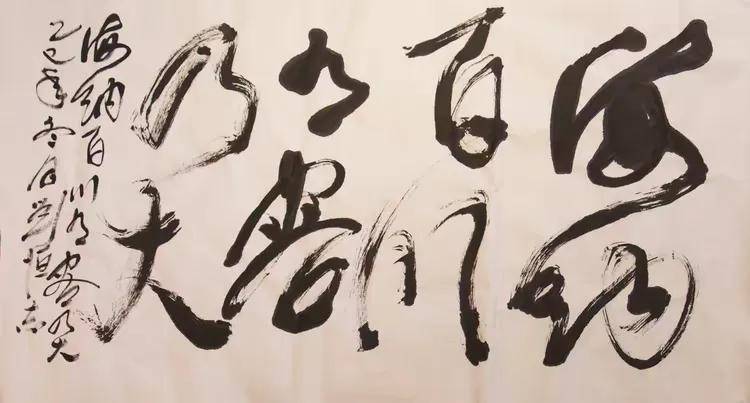 海纳
百川
有容
乃大
海纳百川有容乃大
乙巳年冬月恒志